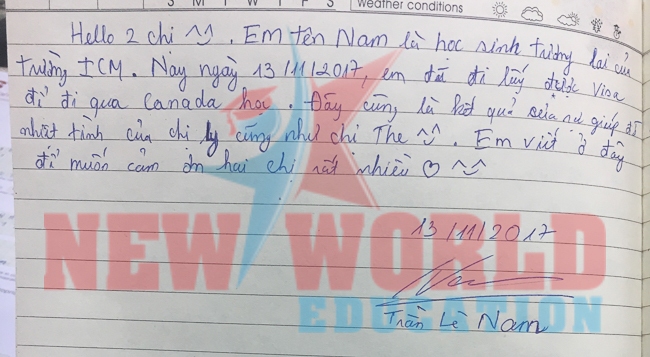 S M T W T F S Weather conditions
Hello 2 chị ^^. Em tên Nam là học sinh tương lai của
trường ICM. Nay ngày 13/11/2017, em đã đi lấy được visa
để đi qua Canada học. Đây cũng là kết quả của sự giúp đỡ
nhiệt tình của chị Ly cũng như chị The ^^. Em viết ở đây
để muốn cảm ơn hai chị rất nhiều ♡ ^^
13/11/2017
NEW WORLD
EDUCATION
Trần Lê Nam